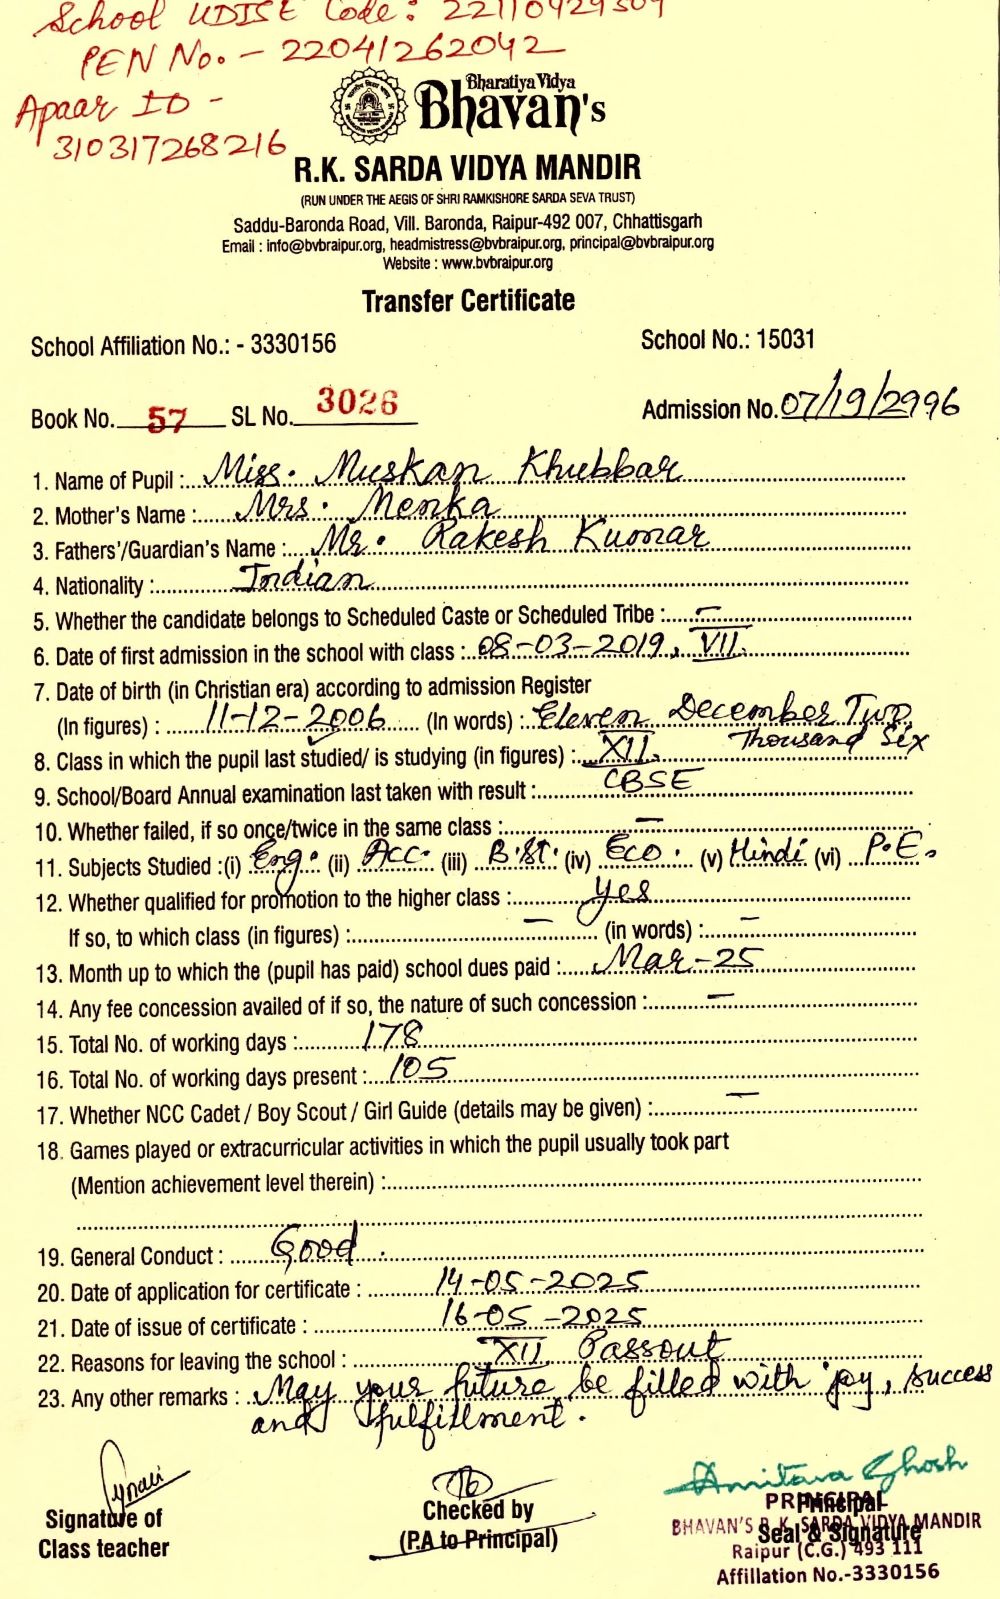 School UDISE Code: 22110429309
PEN No. - 22041262042
Apaar ID -
310317268216
Bharatiya Vidya
Bhavan's
R.K. SARDA VIDYA MANDIR
(RUN UNDER THE AEGIS OF SHRI RAMKISHORE SARDA SEVA TRUST)
Saddu-Baronda Road, Vill. Baronda, Raipur-492 007, Chhattisgarh
Email : info@bvbraipur.org, headmistress@bvbraipur.org, principal@bvbraipur.org
Website : www.bvbraipur.org
Transfer Certificate
School Affiliation No.: - 3330156 School No.: 15031
Book No. 57 SL No. 3026 Admission No. 07/19/2996
1. Name of Pupil : Miss. Muskan Khubbar
2. Mother's Name : Mrs. Menka
3. Fathers'/Guardian's Name : Mr. Rakesh Kumar
4. Nationality : Indian
5. Whether the candidate belongs to Scheduled Caste or Scheduled Tribe : —
6. Date of first admission in the school with class : 08-03-2019, VII.
7. Date of birth (in Christian era) according to admission Register
(In figures) : 11-12-2006 (In words) : Eleven December Two
Thousand Six
8. Class in which the pupil last studied/ is studying (in figures) : XII.
9. School/Board Annual examination last taken with result : CBSE
10. Whether failed, if so once/twice in the same class : —
11. Subjects Studied :(i) Eng. (ii) Acc. (iii) B.St. (iv) Eco. (v) Hindi (vi) P.E.
12. Whether qualified for promotion to the higher class : yes
If so, to which class (in figures) : — (in words) : —
13. Month up to which the (pupil has paid) school dues paid : Mar-25
14. Any fee concession availed of if so, the nature of such concession : —
15. Total No. of working days : 178
16. Total No. of working days present : 105
17. Whether NCC Cadet / Boy Scout / Girl Guide (details may be given) : —
18. Games played or extracurricular activities in which the pupil usually took part
(Mention achievement level therein) :
19. General Conduct : Good.
20. Date of application for certificate : 14-05-2025
21. Date of issue of certificate : 16-05-2025
22. Reasons for leaving the school : XII Passout
23. Any other remarks : May your future be filled with joy, success
and fulfillment.
Signature of
Class teacher
Checked by
(P.A to Principal)
Amitava Ghosh
PRINCIPAL
Principal
BHAVAN'S R.K. SARDA VIDYA MANDIR
Seal & Signature
Raipur (C.G.) 493 111
Affillation No.-3330156